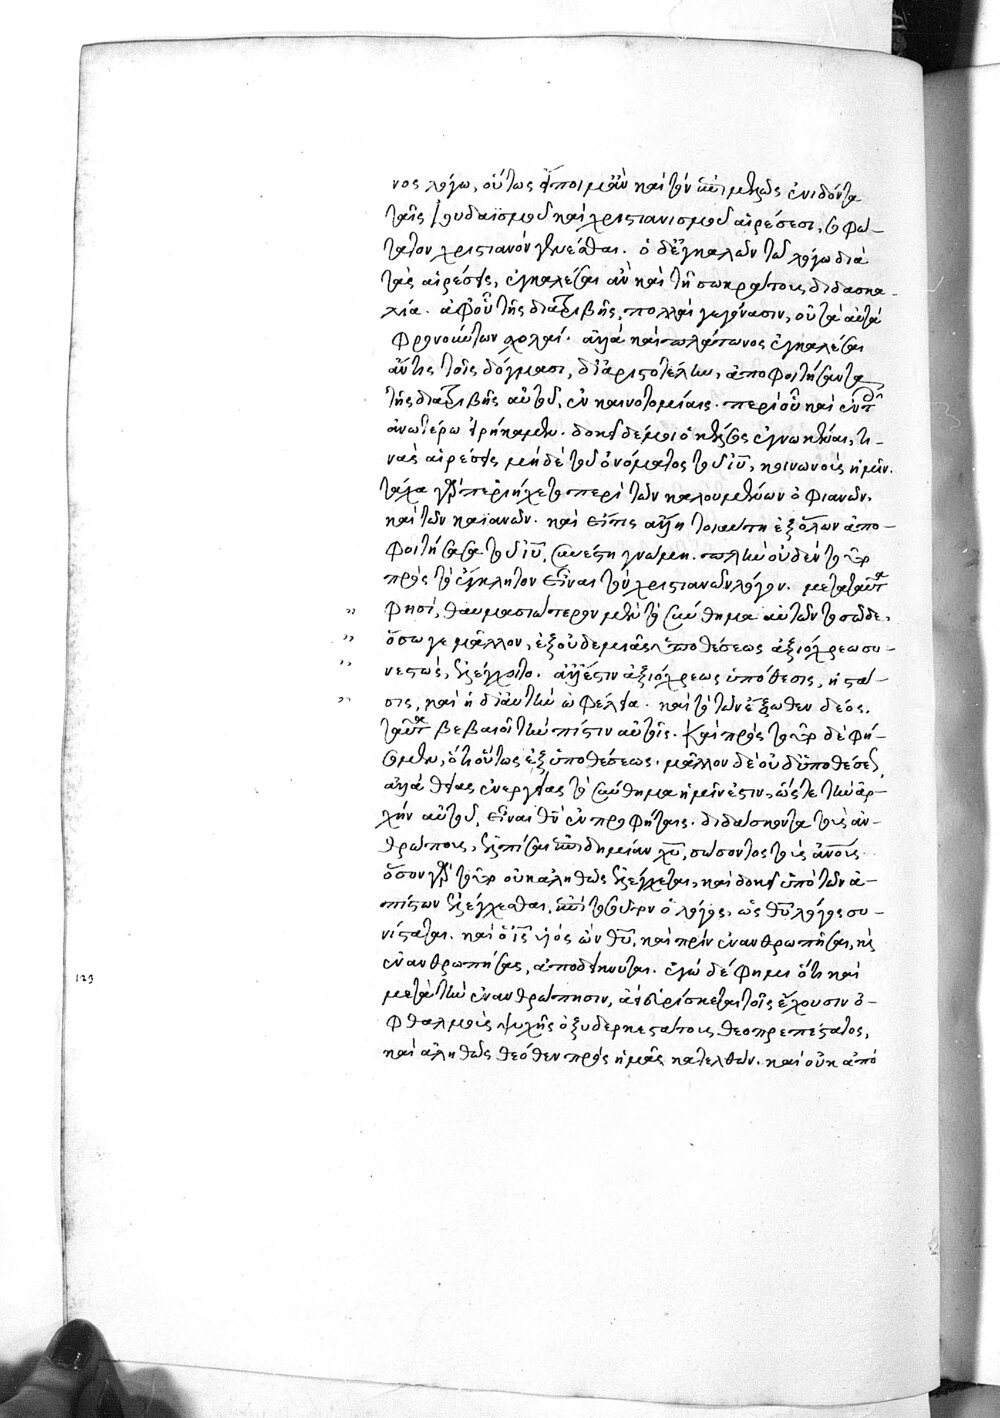 νος λόγω, οὕτως εἴποιμ' ἂν καὶ τὸν ἐπιμελῶς ἐνιδόντα
ταῖς ἰουδαϊσμοῦ καὶ χριστιανισμοῦ αἱρέσεσι, σοφώ-
τατον χριστιανὸν γενέσθαι. ὁ δ' ἐγκαλῶν τῶ λόγω διὰ
τὰς αἱρέσεις, ἐγκαλέσαι ἂν καὶ τῇ σωκράτους διδασκα-
λία. ἀφ' οὗ τῆς διατριβῆς, πολλαὶ γεγόνασιν, οὐ τὰ αὐτὰ
φρονούντων σχολαί. ἀλλὰ καὶ πλάτωνος ἐγκαλέσαι
ἄν τις τοῖς δόγμασι, δι' ἀριστοτέλην, ἀποφοιτήσαντα
τῆς διατριβῆς αὐτοῦ, ἐν καινοτομίαις. περὶ οὗ καὶ ἐν τοῖς
ἀνωτέρω εἰρήκαμεν. δοκεῖ δέ μοι ὁ κέλσος ἐγνωκέναι, τι-
νὰς αἱρέσεις μηδὲ τοῦ ὀνόματος τοῦ ἰῦ, κοινωνούς ἡμῖν.
τάχα γὰρ περιήχετο περὶ τῶν καλουμένων ὀφιανῶν,
καὶ τῶν καϊανῶν. καὶ εἴ τις ἄλλη τοιαύτη ἐξ ὅλων ἀπο-
φοιτήσασα τοῦ ἰῦ, συνέστη γνώμη. πλὴν οὐδὲν τοῦτο
πρὸς τὸ ἐγκλητὸν εἶναι τὸν χριστιανῶν λόγον. μετὰ ταῦτά
φησί, θαυμασιώτερον μὲν τὸ σύνθημα αὐτῶν τοσῶδε,
ὅσω γε μᾶλλον, ἐξ οὐδεμιᾶς ὑποθέσεως ἀξιόχρεω συ-
νεστώς, ἐλέγχοιτο. ἀλλ' ἔστιν ἀξιόχρεως ὑπόθεσις, ἡ στά-
σις, καὶ ἡ δι' αὐτὴν ὠφέλεια. καὶ τὸ τῶν ἔξωθεν δέος.
ταῦτα βεβαιοῖ τὴν πίστιν αὐτοῖς. καὶ πρὸς τοῦτο δὲ φή-
σομεν, ὅτι οὕτως ἐξ ὑποθέσεως. μᾶλλον δὲ οὐδ' ὑποθέσεως,
ἀλλὰ θείας ἐνεργείας τὸ σύνθημα ἡμῖν ἐστιν, ὥστε τὴν ἀρ-
χὴν αὐτοῦ, εἶναι θν̄ ἐν προφήταις. διδάσκοντα τοὺς ἀν-
θρώπους, ἐλπίσαι ἐπιδημίαν χῦ, σώσοντος τοὺς ἀν̄ους.
ὅσον γὰρ τοῦτο οὐκ ἀληθῶς ἐλέγχεται, καὶ δοκεῖ ὑπὸ τῶν ἀ-
πίστων ἐλέγχεσθαι, ἐπὶ τοσοῦτον ὁ λόγος, ὡς θῦ λόγος συ-
νίσταται. καὶ ὁ ἰς̄ υἱὸς ὢν θῦ, καὶ πρὶν ἐνανθρωπῆσαι, καὶ
ἐνανθρωπήσας, ἀποδείκνυται. ἐγὼ δέ φημι ὅτι καὶ
μετὰ τὴν ἐνανθρώπησιν, ἀεὶ εὑρίσκεται τοῖς ἔχουσιν ὀ-
φθαλμοὺς ψυχῆς ὀξυδερκεστάτους θεοπρεπέστατος,
καὶ ἀληθῶς θεόθεν πρὸς ἡμᾶς κατελθών. καὶ οὐκ ἀπὸ
129